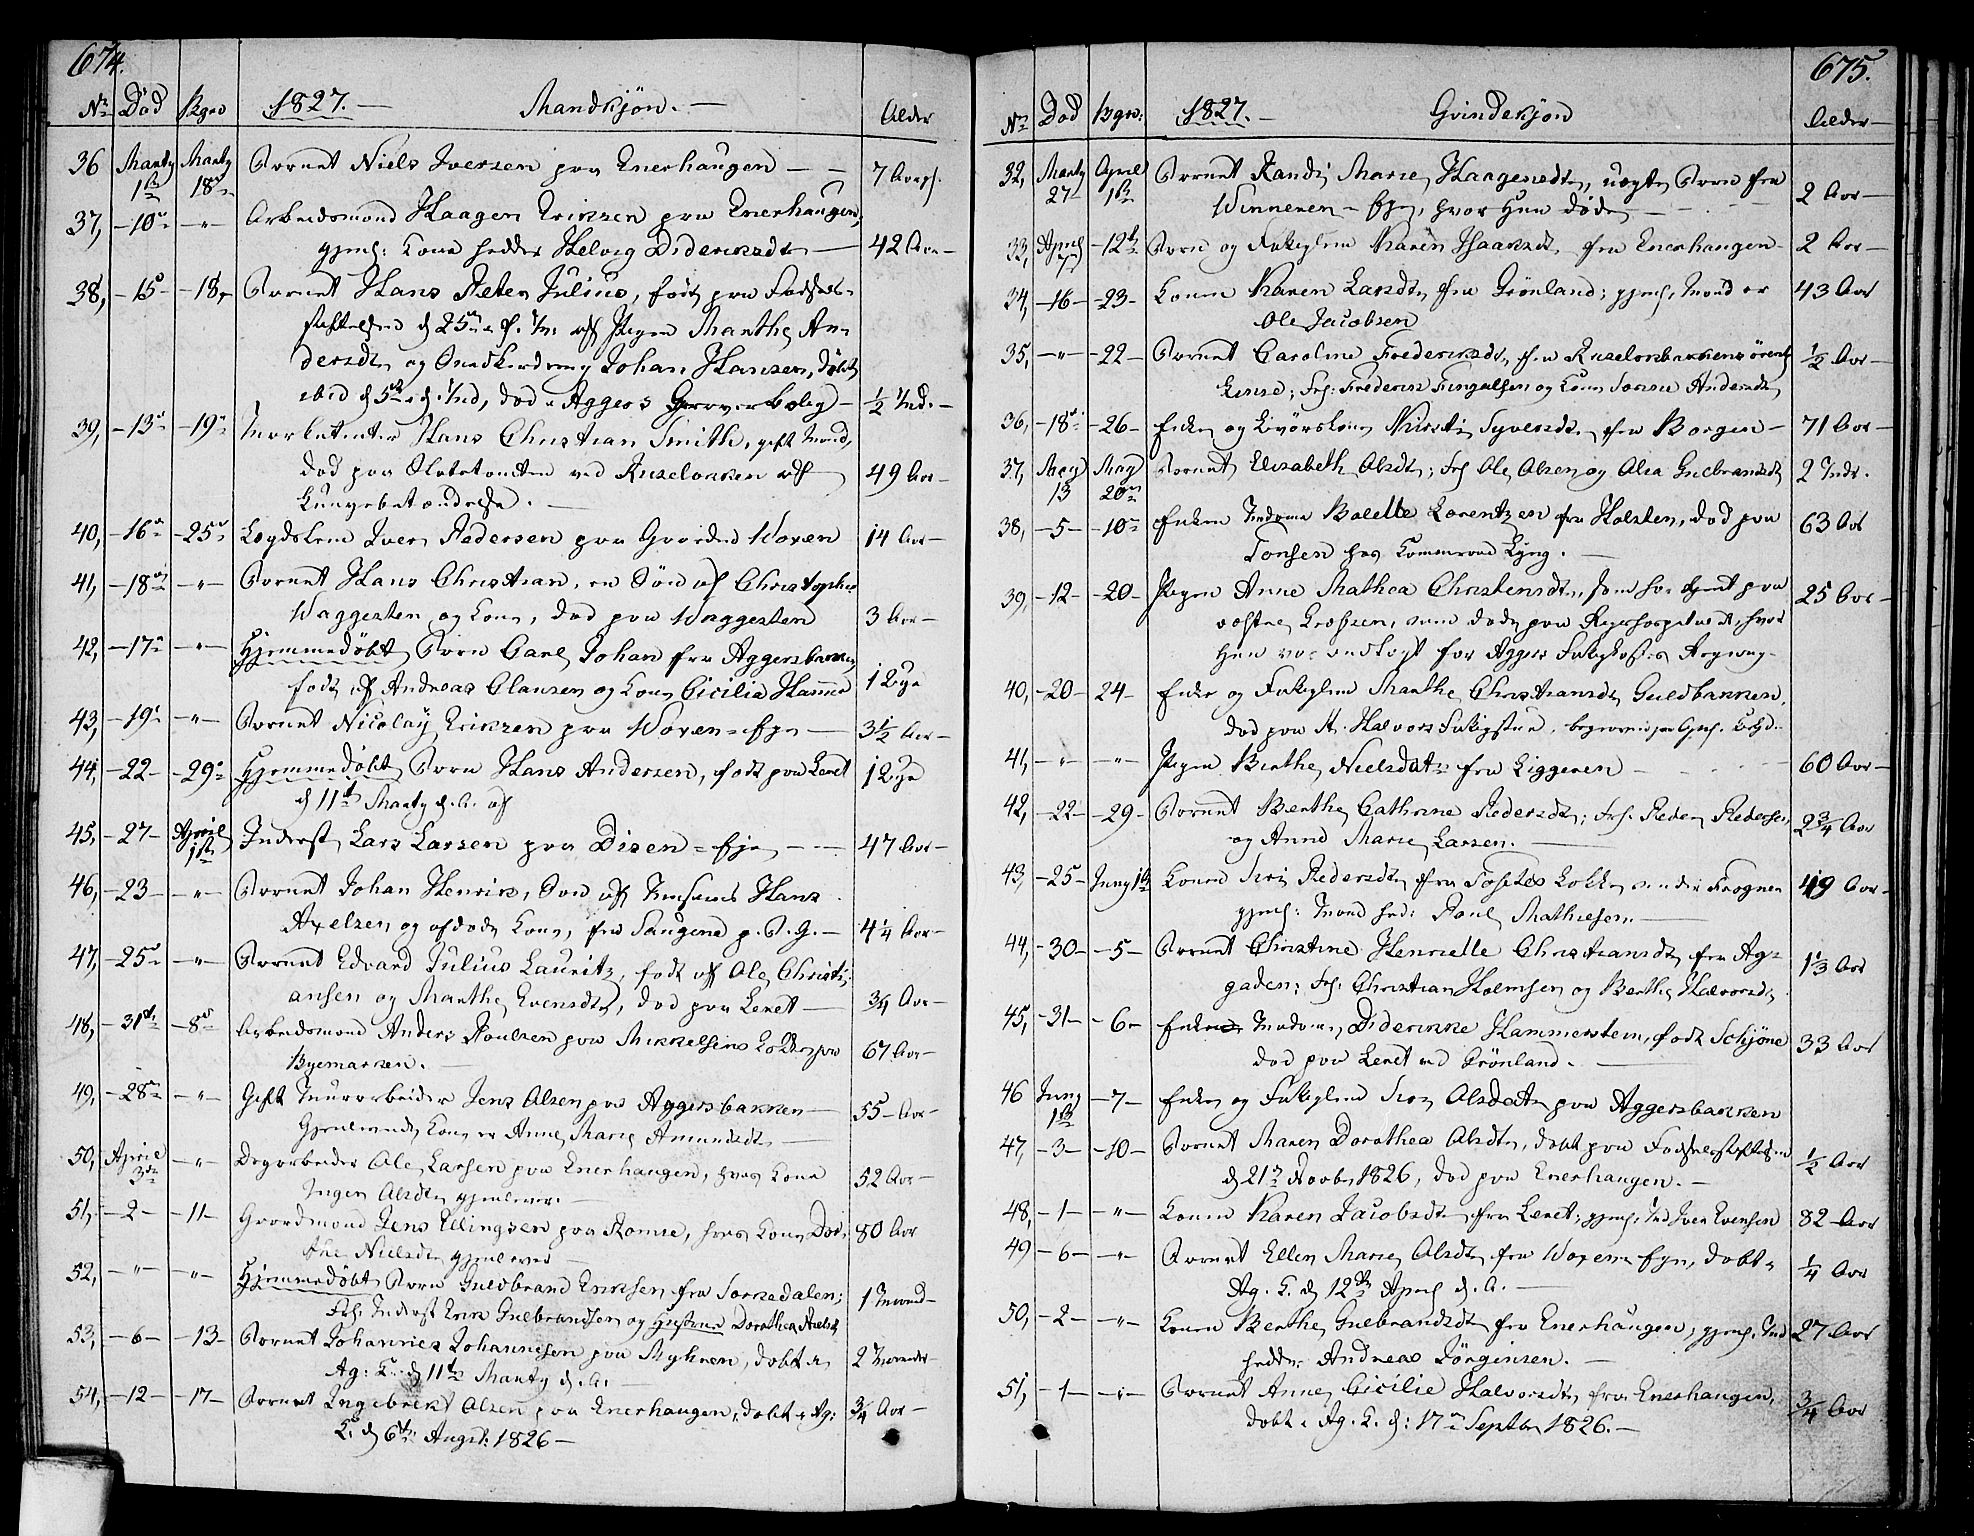 674.
No Död Bgr 1827. — Mandkjøn. — Alder
36 Marty 1ste Marty 18de Barnet Niels Iversen paa Enerhaugen — — 7 Aar
37, —10de —"— Arbeidsmand Haagen Erichsen paa Enerhaugen,
gjenl: Kone hedder Helvig Didericsdtr — 42 Aar—
38, —15— —18— Barnet Hans Peter Julius, født paa Fødsels-
stiftelsen d 25de f. M: af Pigen Marthe An-
dersdtr og Johan Hansen, døbt
ibid d 5te d. Md, død i Aggers — ½ Md.—
39, —13de —19de Hans Christian Smith, gift Mand,
død paa ved Ruseløkken af — 49 Aar—
Lungebetændelse. —
40, —16de —25de Lægdslem Iver Pedersen paa Gaarden Woxen 14 Aar—
41, —18de —"— Barnet Hans Christian, en Søn af Christopher
Waggesten og Kone, død paa Waggesten 3 Aar—
42, —17de —"— Hjemmedøbt Barn Carl Johan fra Aggersbakken
født af Andreas Clausen og Kone Cicilia Hamme 1 Uge
43, —19de —"— Barnet Nicolaÿ Erichsen paa Woxen=Eje — 3½ Aar—
44, —22— —29de Hjemmedøbt Barn Hans Andersen, født paa Leret 1 Uge
d 11te Marty d. A. af
45, —27— April 1ste Inderst Lars Larsen paa Disen=Eje — 47 Aar—
46, —23— —"— Barnet Johan Henrich, Søn af Hans
Axelsen og afdøde Kone, fra Saugene p. B. G. — 4¼ Aar—
47, —25de —"— Barnet Edvard Julius Lauritz, født af Ole Christi-
ansen og Marthe Evensdtr, død paa Leret — ¾ Aar—
48, —31te —8de Arbeidsmand Anders Poulsen paa Mikkelsens Løkke paa
Byemarken. — 67 Aar—
49, —28de —"— Gift Muurarbeider Jens Olsen paa Aggersbakken —
Gjenlevende Kone er Anne Marie Amundsdtr — 55 Aar—
50, April 3de —"— Dagarbeider Ole Larsen paa Enerhaugen, hvis Kone
Inger Olsdtr gjenlever. — 52 Aar—
51, —2— —11— Gaardmand Jens Ellingsen paa Romse, hvis Kone Dor-
the Nielsdtr gjenlever — 80 Aar
52, —"— —"— Hjemmedøbt Barn Guldbrand Erichsen fra Sørkedalen;
F: Inderst Erik Gulbrandsen og Hustrue Dorothea 1 Maaned—
53, —6— —13— Barnet Johannes Johannesen paa Myhren, døbt i
Ag: K. d 11te Marty d. A. — 2 Maaneder—
54, —12— —17— Barnet Ingebrekt Olsen paa Enerhaugen, døbt i Ag:
K. d 6te Augst: 1826— ¾ Aar—
675.
No Død Bgr: 1827. — Qvindekjøn Alder—
32, Marty 27— April 1ste Barnet Randi Marie Haagensdtr, uægte Barn fra
Winneren=Eje, hvor Hun døde — 2 Aar—
33, April 7de —12te Barn og Fattiglem Karen Isaaksdtr fra Enerhaugen— 2 Aar—
34, —16— —23— Konen Karen Larsdtr fra Grønland; gjenl: Mand er 43 Aar
Ole Jacobsen
35, —"— —22— Barnet Caroline Fredericsdtr fra Ruseløkbakken ½ Aar—
; F: Frederik og Kone Andersdtr
36, —18de —26— Enke og Kirsti Syversdtr fra Borgen— 71 Aar—
37, May 13 May 20de Barnet Elisabeth Olsdtr; F: Ole Olsen og Olea Gulbrandsdtr 2 Mdr.
38, —5— —10de Enken Madame Bolette Lorentzen fra Holsten, død paa 63 Aar
Tonsen hos Lyng. —
39, —12— —20— Pigen Anne Mathea Christensdtr, som har tjent paa 25 Aar—
vestre Grefsen, men døde paa Rigshospitalet, hvor
Hun var indlagt for Aggers Fattigkasses Regning—
40, —20— 24— Enke og Fattiglem Marthe Christiansdtr Guldbakken,
død paa St. Halvors Fattigstue, begravet paa
41, —"— —"— Pigen Berthe Nielsdatr fra Liggeren — 60 Aar—
42, —22— —29— Barnet Berthe Cathrine Pedersdtr; F: Peder Pedersen
og Anne Marie Larsen. — 2¾ Aar
43, —25— Juny 1ste Konen Siri Pedersdtr fra Tostes Løkke under Frogner 49 Aar—
gjenl: Mand hed: Paul Mathiesen. —
44, —30— —5— Barnet Christine Henriette Christiansdtr fra Ag-
gaden; F: Christian Holmsen og Berthe Halvorsdtr 1⅓ Aar
45, —31— —6— Enke Madame Diderikke Hammerstein, født Schjöne 33 Aar
død paa Leret ved Grönland. —
46 Juny 1ste —7— Enke og Fattiglem Siri Olsdatr paa Aggersbakken
47, —3— —10— Barnet Maren Dorothea Olsdtr, døbt paa Fødselsstiftelsen
d 21de Novbr 1826, død paa Enerhaugen. — ½ Aar
48, —1— —"— Konen Karen Jacobsdtr fra Leret; gjenl: Md Iver Evensen 82 Aar
49 —6— —"— Barnet Ellen Marie Olsdtr fra Woxen=Eje, døbt i
Ag. K. d 12te April d. A. — ¼ Aar
50, —2— —"— Konen Berthe Gulbrandsdtr fra Enerhaugen, gjenl: Md 27 Aar
hedder Andreas Jörgensen. —
51, —1— —"— Barnet Anne Cicilie Halvorsdtr fra Enerhaugen,
døbt i Ag. K. d: 17de Septbr 1826. — ¾ Aar